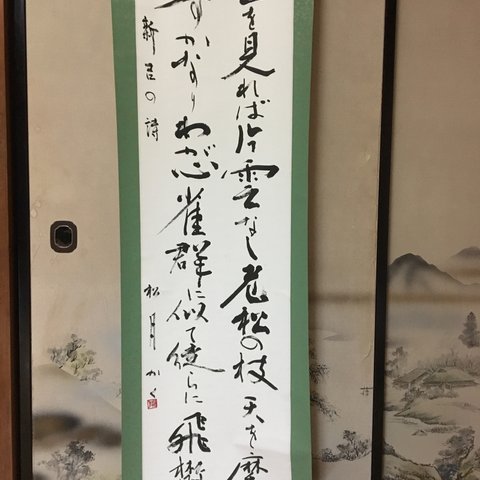 を見れば片雲なし老松の枝天を摩
かなりわが心雀群に似て徒らに飛
新吉の詩
松月かく